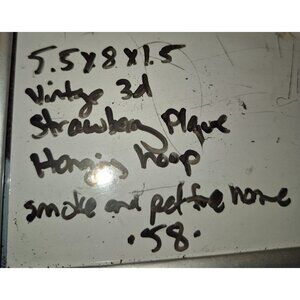 5.5x8x1.5
Vintage 3d
Strawberry Plaque
Hanging hoop
smoke and pet free home
.58.